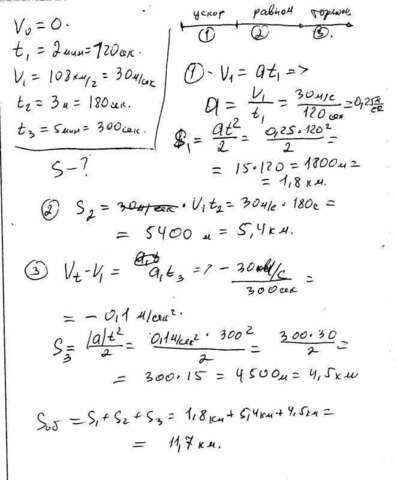 ускор равном тормож
① ② ③
V₀ = 0.
t₁ = 2 мин = 120 сек.
V₁ = 108 км/ч = 30 м/сек
t₂ = 3 м = 180 сек.
t₃ = 5 мин = 300 сек.
S - ?
① - V₁ = at₁ =>
a = V₁/t₁ = 30 м/с / 120 сек = 0,25 м/с²
S₁ = at²/2 = 0,25·120²/2 =
= 15·120 = 1800 м =
= 1,8 км.
② S₂ = V₁t₂ = 30 м/с · 180 с =
= 5400 м = 5,4 км.
③ Vt - V₁ = a₁t₃ => - 30 м/с / 300 сек =
= - 0,1 м/сек².
S₃ = |a|t²/2 = 0,1 м/сек² · 300²/2 = 300·30/2 =
= 300·15 = 4500 м = 4,5 км
Sоб = S₁ + S₂ + S₃ = 1,8 км + 5,4 км + 4,5 км =
= 11,7 км.